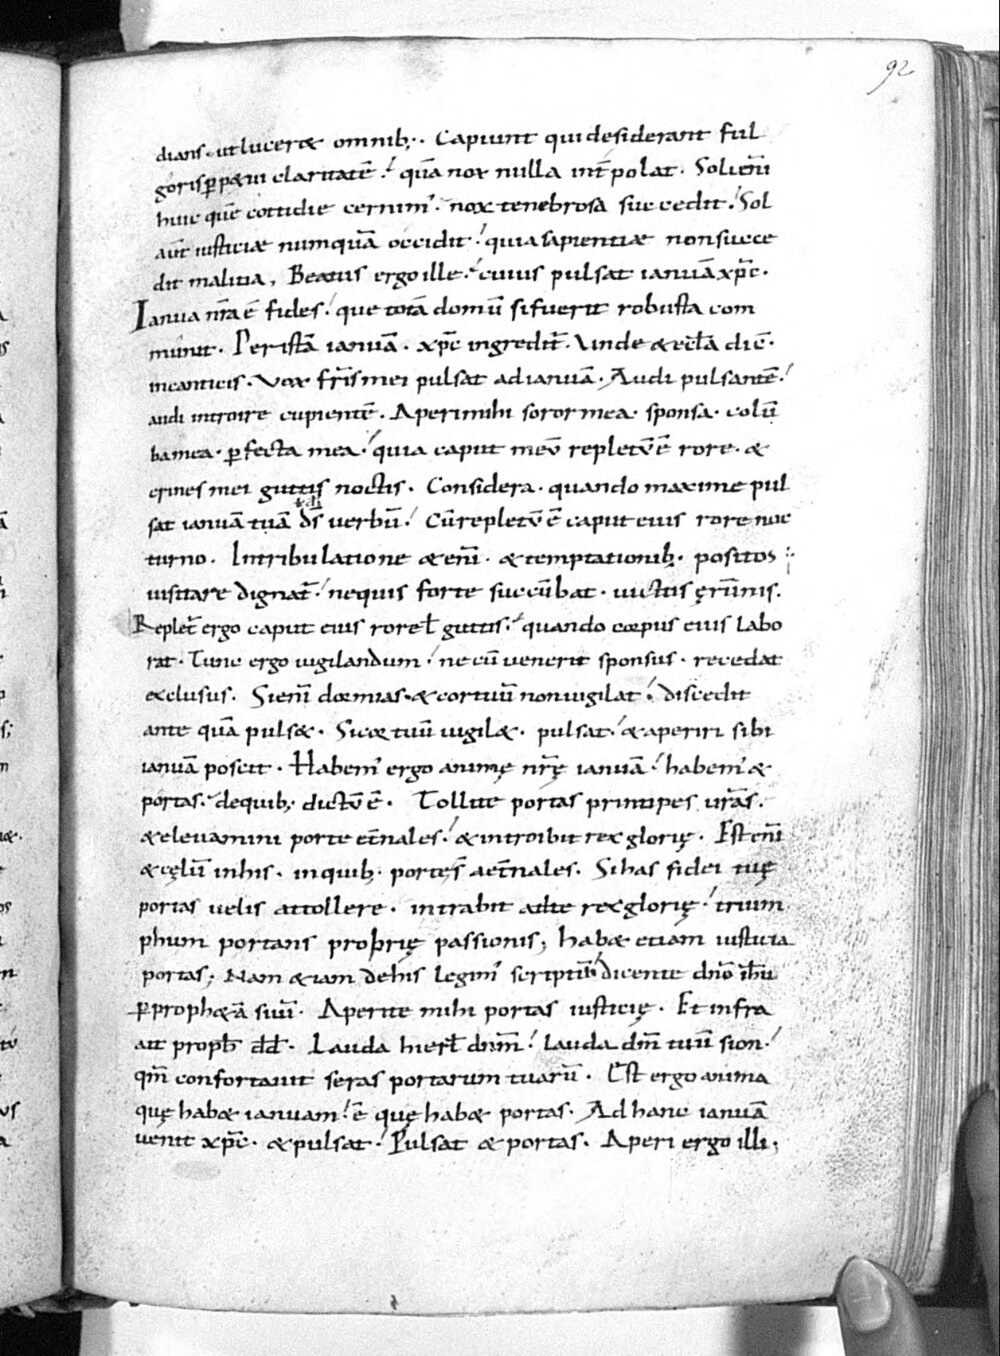 92
dians. ut lucer&  omnib;. Capiunt qui desiderant ful
goris ꝑp&ui claritatē. quā nox nulla int̄polat. Soli eni
huic quē cottidie cernim'. nox tenebrosa succedit. Sol
aut̄ iusticiae numquā occidit. quia sapientiae non succe
dit malitia, Beatus ergo ille. cuius pulsat ianuā xp̄c.
Ianua nr̄a ē fides. que totā domū si fuerit robusta com
munit. Per istā ianuā. xp̄c ingredit̄. Unde & eccl̄a dic̄.
incanticis. Vox fr̄is mei pulsat ad ianuā. Audi pulsantē.
audi introire cupientē. Aperi mihi soror mea. sponsa. colū
ba mea. ꝑfecta mea. quia caput meū repletū ē rore. &
crines mei guttis noctis. Considera. quando maxime pul
sat ianuā tuā dī verbū. Cū repletū ē caput eius rore noc
turno. In tribulatione & eni. & temptationib;. positos
uisitare dignat̄. ne quis forte succūbat. uictus ęrūnis.
Replet̄ ergo caput eius rore l̄ guttis. quando corpus eius labo
rat. Tunc ergo uigilandum. ne cū uenerit sponsus. recedat
exclusus. Si eni dormias. & cor tuū non uigilat. discedit
ante quā puls&. Si cor tuū uigil&. pulsat. & aperiri sibi
ianuā poscit. Habem' ergo animę nr̄ę ianuā. habem' &
portas. de quib; dictū ē. Tollite portas principes ur̄as.
& eleuamini porte et̄nales. & introibit rex glorię. Est eni
& cęlū in his. in quib; portę s̄ aet̄nales. Si has fidei tuę
portas uelis attollere. intrabit ad te rex glorię. trium
phum portans proprię passionis, hab& etiam iusticia
portas, Nam & iam de his legim' scriptū dicente dn̄o ih̄u
ꝑ proph&ā suū. Aperite mihi portas iusticię. Et infra
ait proph̄ dd̄. Lauda hierl̄ dn̄m. lauda dm̄ tuū sion.
qm̄ confortauit seras portarum tuarū. Est ergo anima
quę hab& ianuam. ē quę hab& portas. Ad hanc ianuā
uenit xp̄c. & pulsat. Pulsat & portas. Aperi ergo illi,